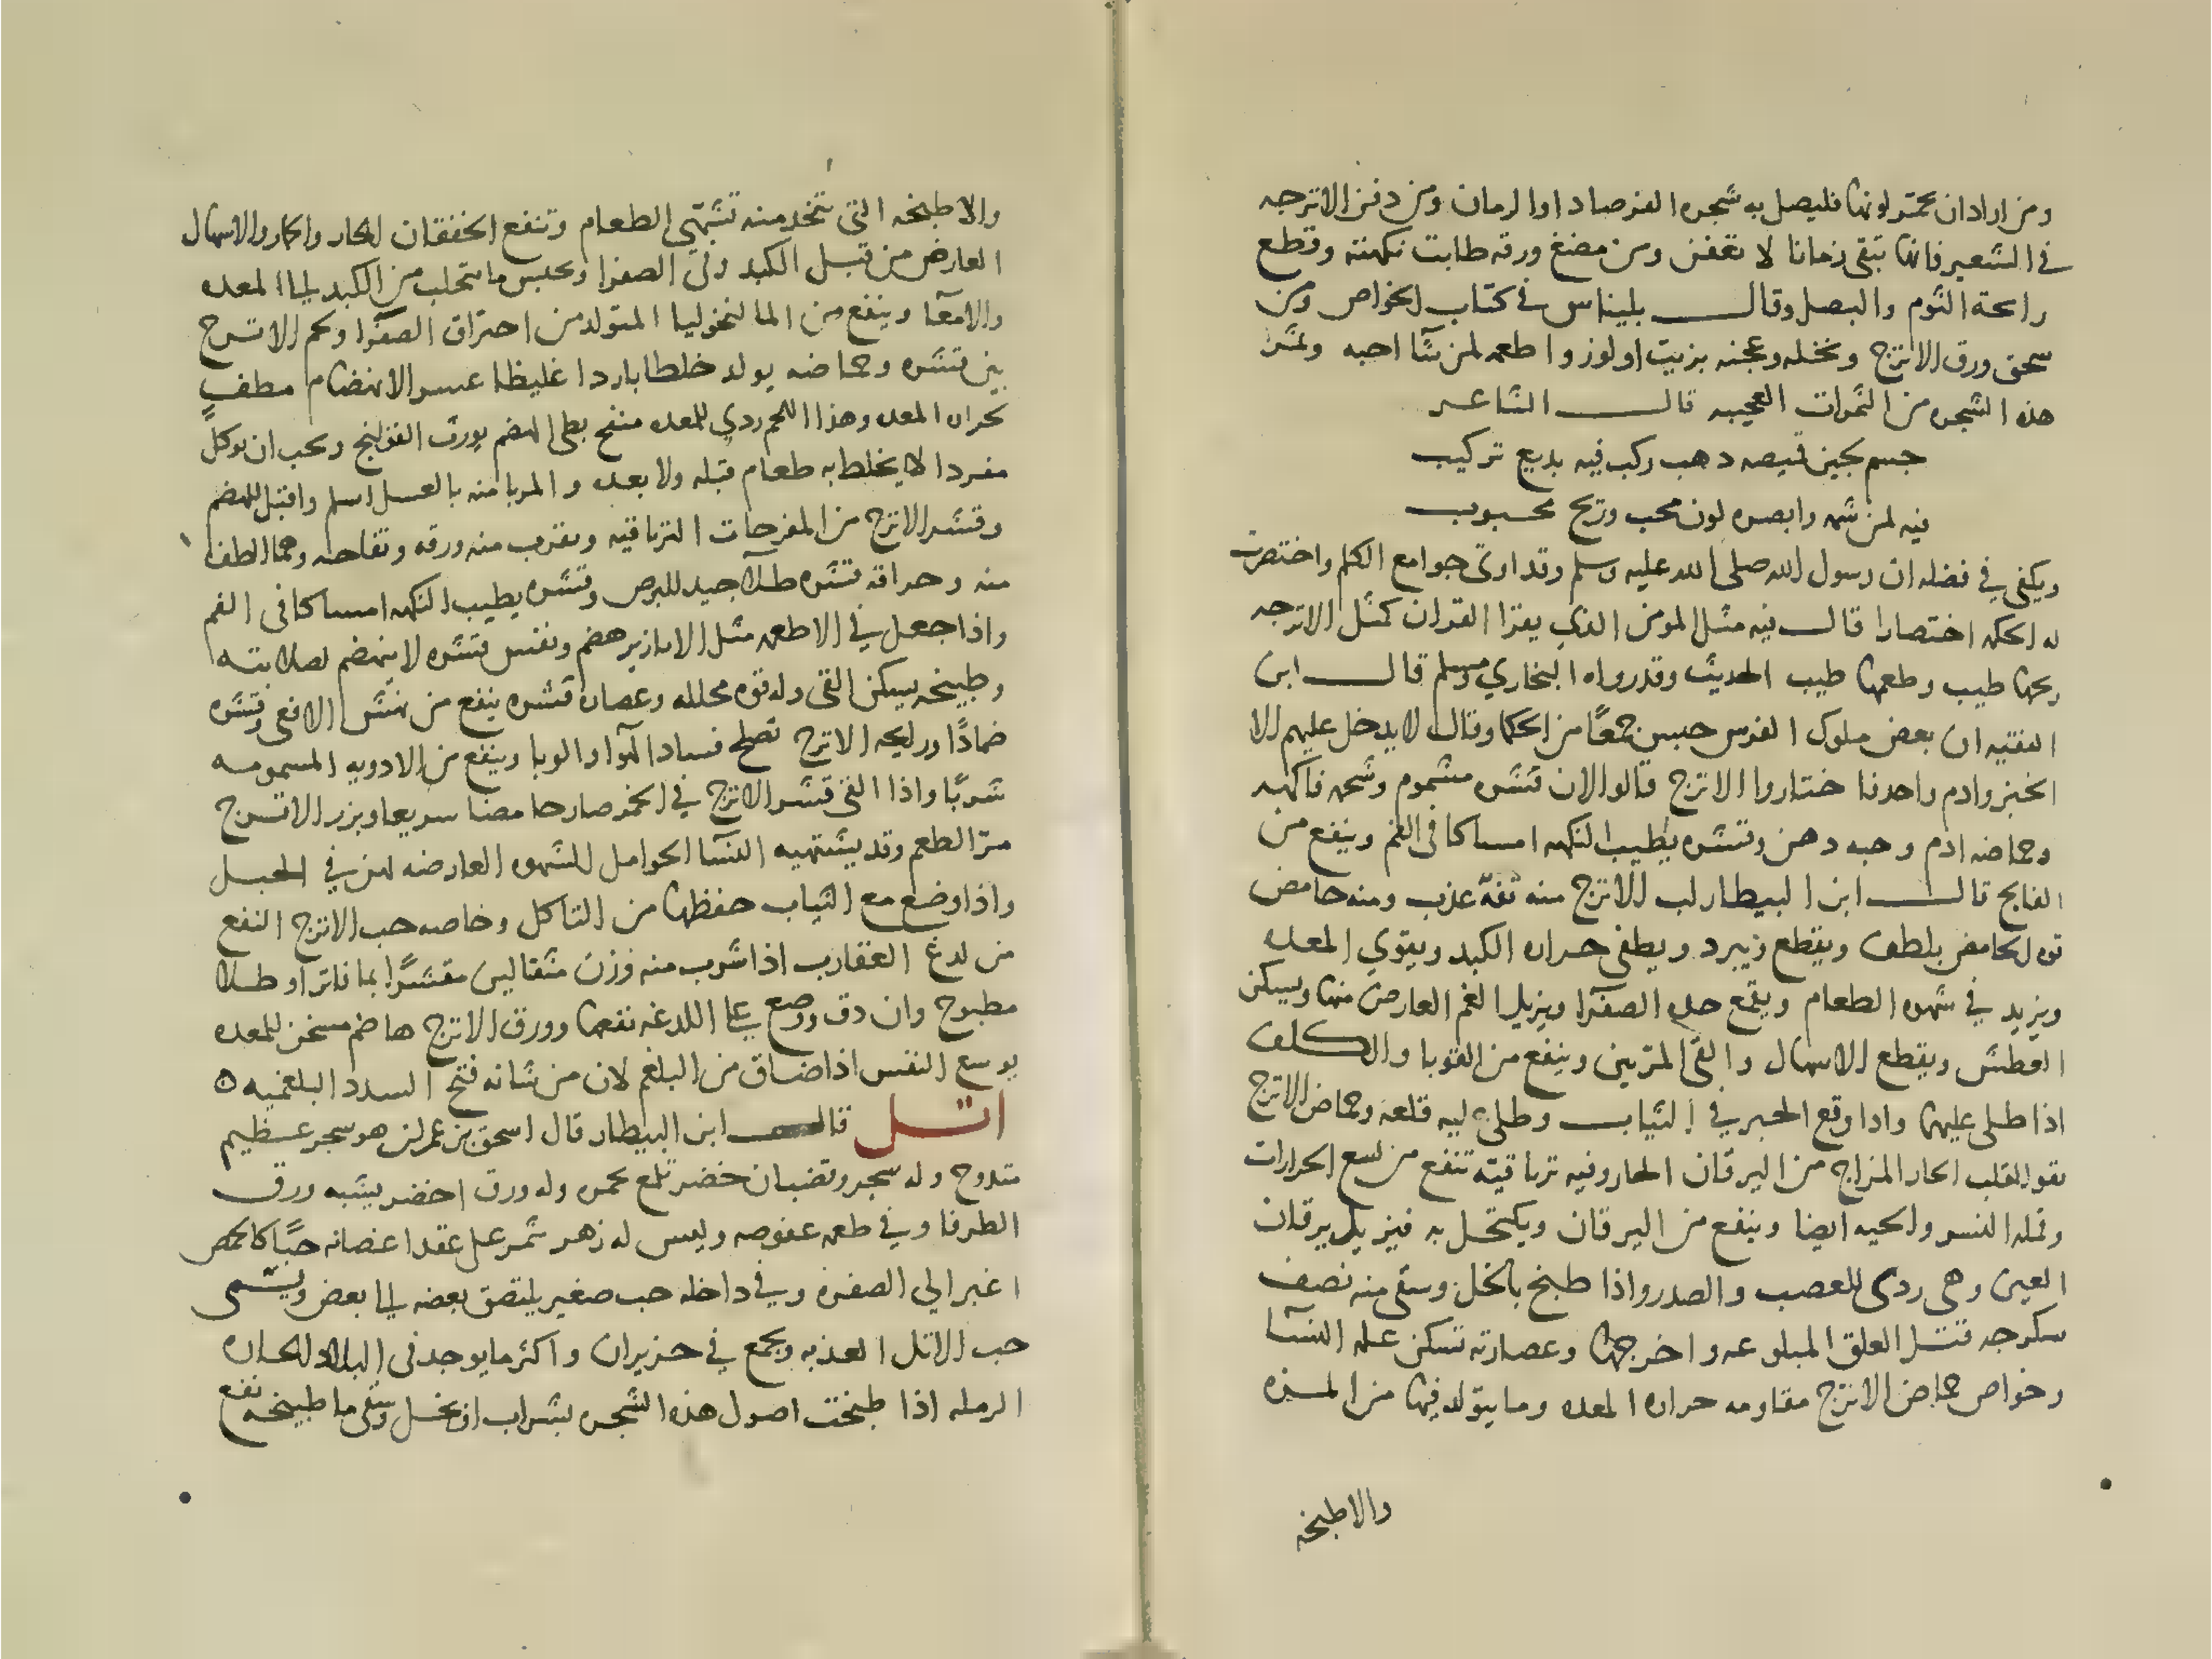 ومن اراد ان تحمر لونها فليصل به شجره الفرصاد او الرمان ومن دفن الاترجه
في الشعير فانها تبقى زمانا لا تعفن ومن مضغ ورقه طابت نكهته وقطع
رايحة الثوم والبصل وقال بليناس في كتاب الخواص ومن
سحق ورق الاترج ونخله وعجنه بزيت او لوز واطعمه لمن شآ احبه وثمر
هذه الشجره من الثمرات العجيبه قال الشاعر
جسم لجين قميصه ذهب ركب فيه بديع تركيب
فيه لمن شمه وابصره لون محب وريح محبوب
ويكفي في فضله ان رسول الله صلى الله عليه وسلم وقد اوتى جوامع الكلم واختصرت
له الحكمه اختصارا قال فيه مثل المومن الذي يقرا القران كمثل الاترجه
ريحها طيب وطعمها طيب الحديث وقد رواه البخاري ومسلم قال ابن
الفقيه ان بعض ملوك الفرس حبس جمعًا من الحكما وقال لا يدخل عليهم الا
الخبز وادم واحد فاختاروا الاترج قالوا لان قشره مشموم وشحمه فاكهه
وحماضه ادم وحبه دهن وقشره يطيب النكهه امساكا في الفم وينفع من
الفالج قال ابن البيطار لب الاترج منه تفه عذب ومنه حامض
قوه الحامض يلطف ويقطع ويبرد ويطفي حراره الكبد ويقوي المعده
ويزيد في شهوه الطعام ويقمع حده الصفرآ ويزيل الغم العارض منها ويسكن
العطش ويقطع الاسهال والقي المرتين وينفع من القوبا والكلف
اذا طلى عليها واذا وقع الحبر في الثياب وطلى عليه قلعه وحماض الاترج
يقو القلب الحار المزاج من اليرقان الحار وفيه ترياقيته تنفع من لسع الجرارات
وقمله النسر والحيه ايضا وينفع من اليرقان ويكتحل به فيزيل يرقان
العين وهى ردى للعصب والصدر واذا طبخ بالخل وسقى منه نصف
سكرجه قتل العلق المبلوعه واخرجها وعصارته تسكن غلمه النسآ
وخواص حماض الاترج مقاومه حراره المعده وما يتولد فيها من المره
والاطبخه
والاطبخه التى تتخذ منه تشهى الطعام وتنفع الخفقان الحار والاسهال
العارض من قبل الكبد وقى الصفرا وتحبس ما يتحلب من الكبد الى المعده
والامعآ وينفع من المالنخوليا المتولد من احتراق الصفرا ولحم الاترج
بين قشره وحماضه يولد خلطا باردا غليظا عسر الانهضام مطف
لحراره المعده وهذا اللحم ردي للمعده منفخ بطى الهضم يورث القولنج ويجب ان يوكل
مفردا لا يخلط به طعام قبله ولا بعده والمربا منه بالعسل اسلم واقبل للهضم
وقشر الاترج من المفرحات الترياقيه ويقرب منه ورقه وفقاحه وهما الطف
منه وحراقه قشره طلآ جيد للبرص وقشره يطيب النكهه امساكا فى الفم
واذا جعل في الاطعمه مثل الابازير هضم ونفس قشره لا ينهضم لصلابته
وطبيخه يسكن القى وله قوه محلله وعصاره قشره ينفع من نهش الافعى وقشره
ضمادًا ورايحه الاترج تصلح فساد الهوا والوبا وينفع من الادويه المسمومه
شربًا واذا القى قشر الاترج في الخمر صار حامضا سريعا وبزر الاترج
مرّ الطعم وقد يشتهيه النسآ الحوامل للشهوه العارضه لهن في الحبل
واذا وضع مع الثياب حفظها من التاكل وخاصه حب الاترج النفع
من لدغ العقارب اذا شرب منه وزن مثقالين مقشرًا بما فاتر او طلا
مطبوخ وان دق ووضع على اللدغه نفعها وورق الاترج هاضم مسخن للمعده
يوسع النفس اذا ضاق من البلغم لان من شانه فتح السدد البلغميه ه
اتل قال ابن البيطار قال اسحق بن عمران هو شجر عظيم
متدوح وله شجر وقضبان خضر تلمع بحمره وله ورق اخضر يشبه ورق
الطرفا وفي طعمه عفوصه وليس له زهر يثمر على عقد اغصانه حبًا كالحمص
اغبر الي الصفره وفي داخله حب صغير يلتصق بعضه الى بعض ويسمى
حب الاتل العذبه ويجمع في حزيران واكثر ما يوجد فى البلاد الحاره
الرمله اذا طبخت اصول هذه الشجره بشراب او بخل وسقى ما طبيخه نفع